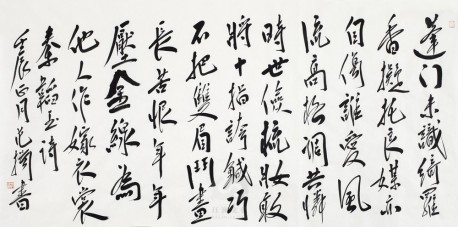 蓬門未識綺羅
香擬托良媒亦
自傷誰愛風
流高格調共憐
時世儉梳妝敢
將十指誇鍼巧
不把雙眉鬥畫
長苦恨年年
壓金線為
他人作嫁衣裳
秦韜玉詩
壬辰正月書